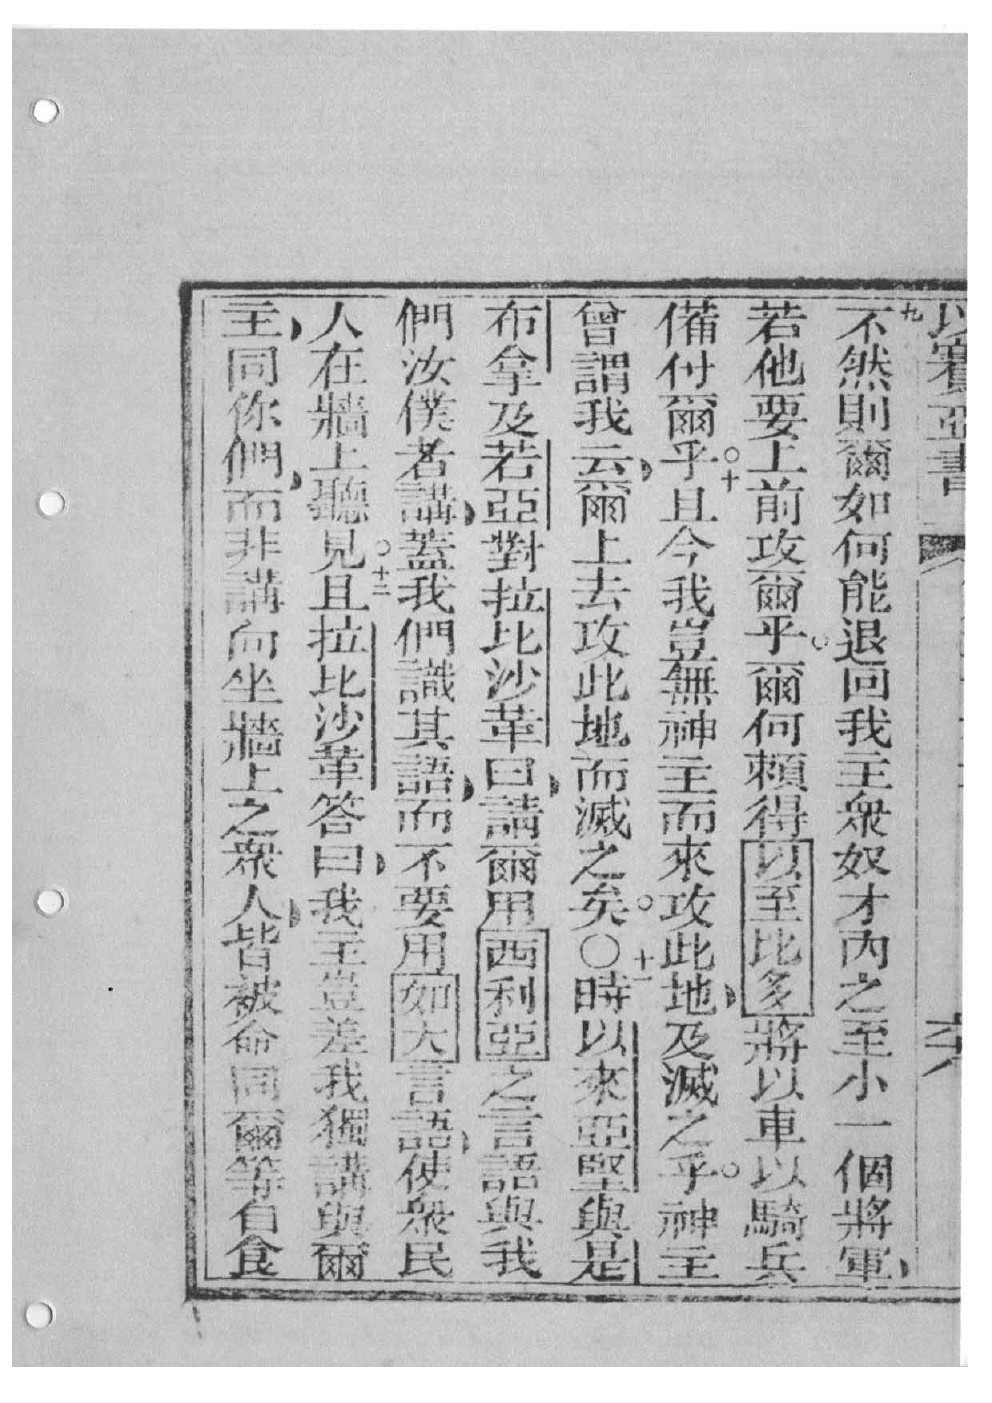 以賽亞書
九不然則爾如何能退回我主衆奴才內之至小一個將軍
若他要上前攻爾乎。爾何賴得以至比多將以車以騎兵
備付爾乎。十且今我豈無神主而來攻此地及滅之乎。神主
曾謂我云爾上去攻此地而滅之矣。〇十一時以來亞堅與是
布拿及若亞對拉比沙革曰請爾用西利亞之言語與我
們汝僕者講蓋我們識其語而不要用如大言語使衆民
人在牆上聽見。十二且拉比沙革答曰我主豈差我獨講與爾
主同你們而非講向坐牆上之衆人皆被命同爾等自食